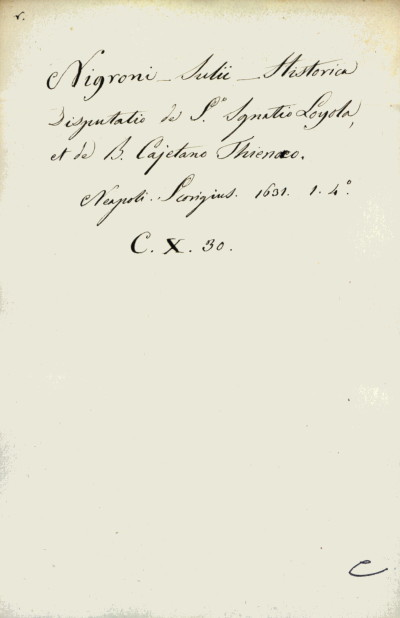 Nigroni - Julii - Historica
Disputatio de S.to Ignatio Loyola,
et de B. Cajetano Thienæo.
Neapoli. Scorigius. 1631. 1. 4°.
C. X. 30.
C